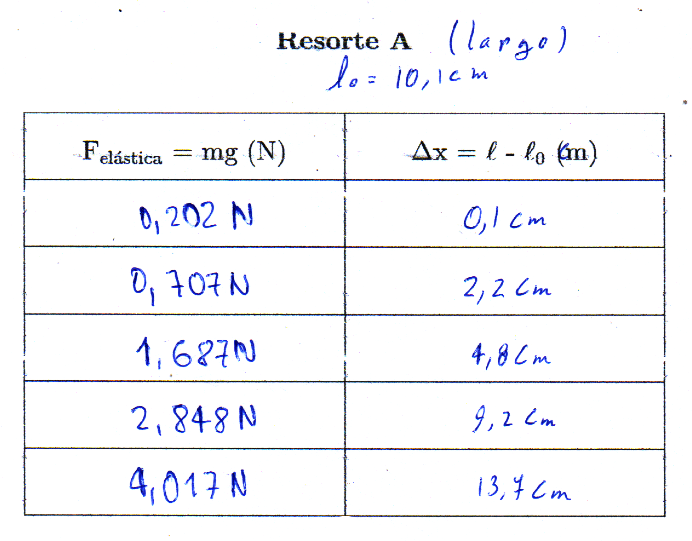 Resorte A (largo)
l₀ = 10,1cm
F elástica = mg (N) Δx = ℓ - ℓ₀ (cm)
0,202 N 0,1 cm
0,707 N 2,2 cm
1,687 N 4,8 cm
2,848 N 9,2 cm
4,017 N 13,7 cm